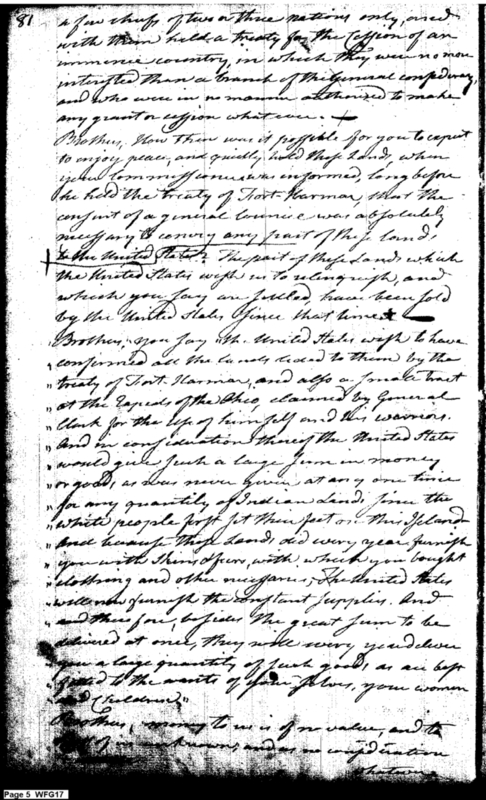 81
a few chiefs of two or three nations only, and
with them held a treaty for the Cession of an
immense country, in which they were no more
interested than a branch of the General confederacy,
and who were in no manner authorized to make
any grant or cession whatever. +
Brothers, How then was it possible for you to expect
to enjoy peace, and quietly hold these Lands, when
your Commissioner was informed, long before
he held the treaty of Fort-Harmar, that the
consent of a general Council was absolutely
necessary to convey any part of these lands
to the United States? The part of these Lands which
the United States wish us to relinquish, and
which you say are settled, have been sold
by the United States since that time
Brothers, you say "the United States wish to have
" confirmed all the lands ceded to them by the
" treaty of Fort Harmar, and also a small tract
" at the Rapids of the Ohio, claimed by General
" Clark for the use of himself and his warriors.
" And in consideration thereof the United States
" would give such a large sum in money
" or goods, as was never given at any one time
" for any quantity of Indian Lands, since the
" white people first set their feet on this Island
" And because these Lands did every year furnish
" you with Skins & furs, with which you bought
" clothing and other necessaries, The United States
" will now furnish the constant supplies. And
" and therefore, besides the great sum to be
" delivered at once, they will every year deliver
" you a large quantity of such goods as are best
" suited to the wants of your selves, your women
" and Children."
Brothers, money to us is of no value, and to
most of us unknown, and as no consideration
whatever
Page 5 WFG17